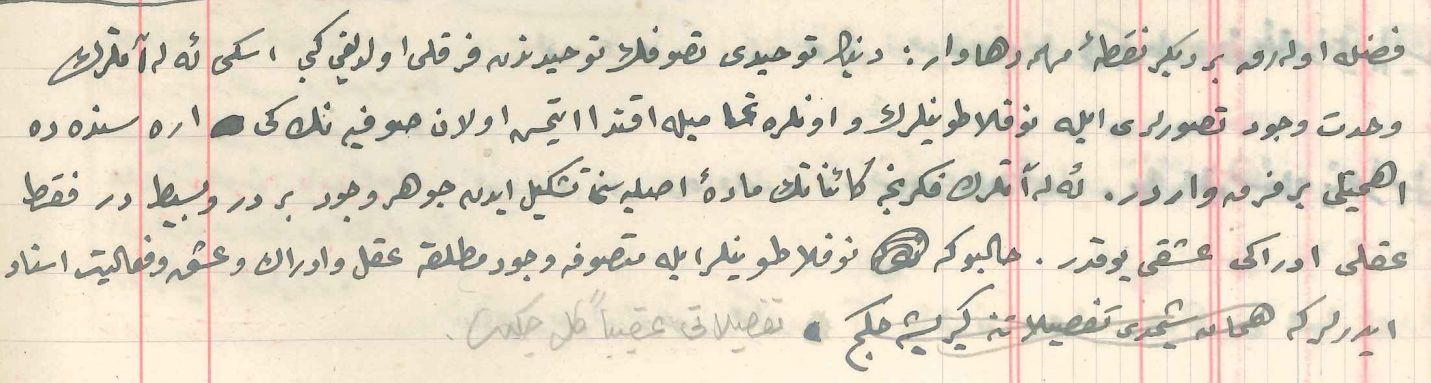 فضله اوله‌رق بر ديكر نقطهٔ مهمه دها وار: دينك توحيدى تصوفك توحيدندن فرقلى اولديغى كبى اسكى ئه‌له‌آتلرك
وحدت وجود تصورلرى ايله نوفلاطونيلرك و اونلره تماميله اقتدا ايتمش اولان صوفيه نك كى اره سنده ده
اهميتلى بر فرق واردر. ئه‌له‌آتلرك فكرنجه كائناتك مادهٔ اصليه سنى تشكيل ايدن جوهر وجود بر در وبسيط در فقط
عقلى ادراكى عشقى يوقدر. حالبوكه نوفلاطونيلر ايله متصوفه وجود مطلقه عقل وادراك وعشق وفعاليت اسناد
ايدرلر كه همان شيمدى تفصيلاتنه كيريشه‌جكم تفصيلاتى عقيباً كله‌جكدر.